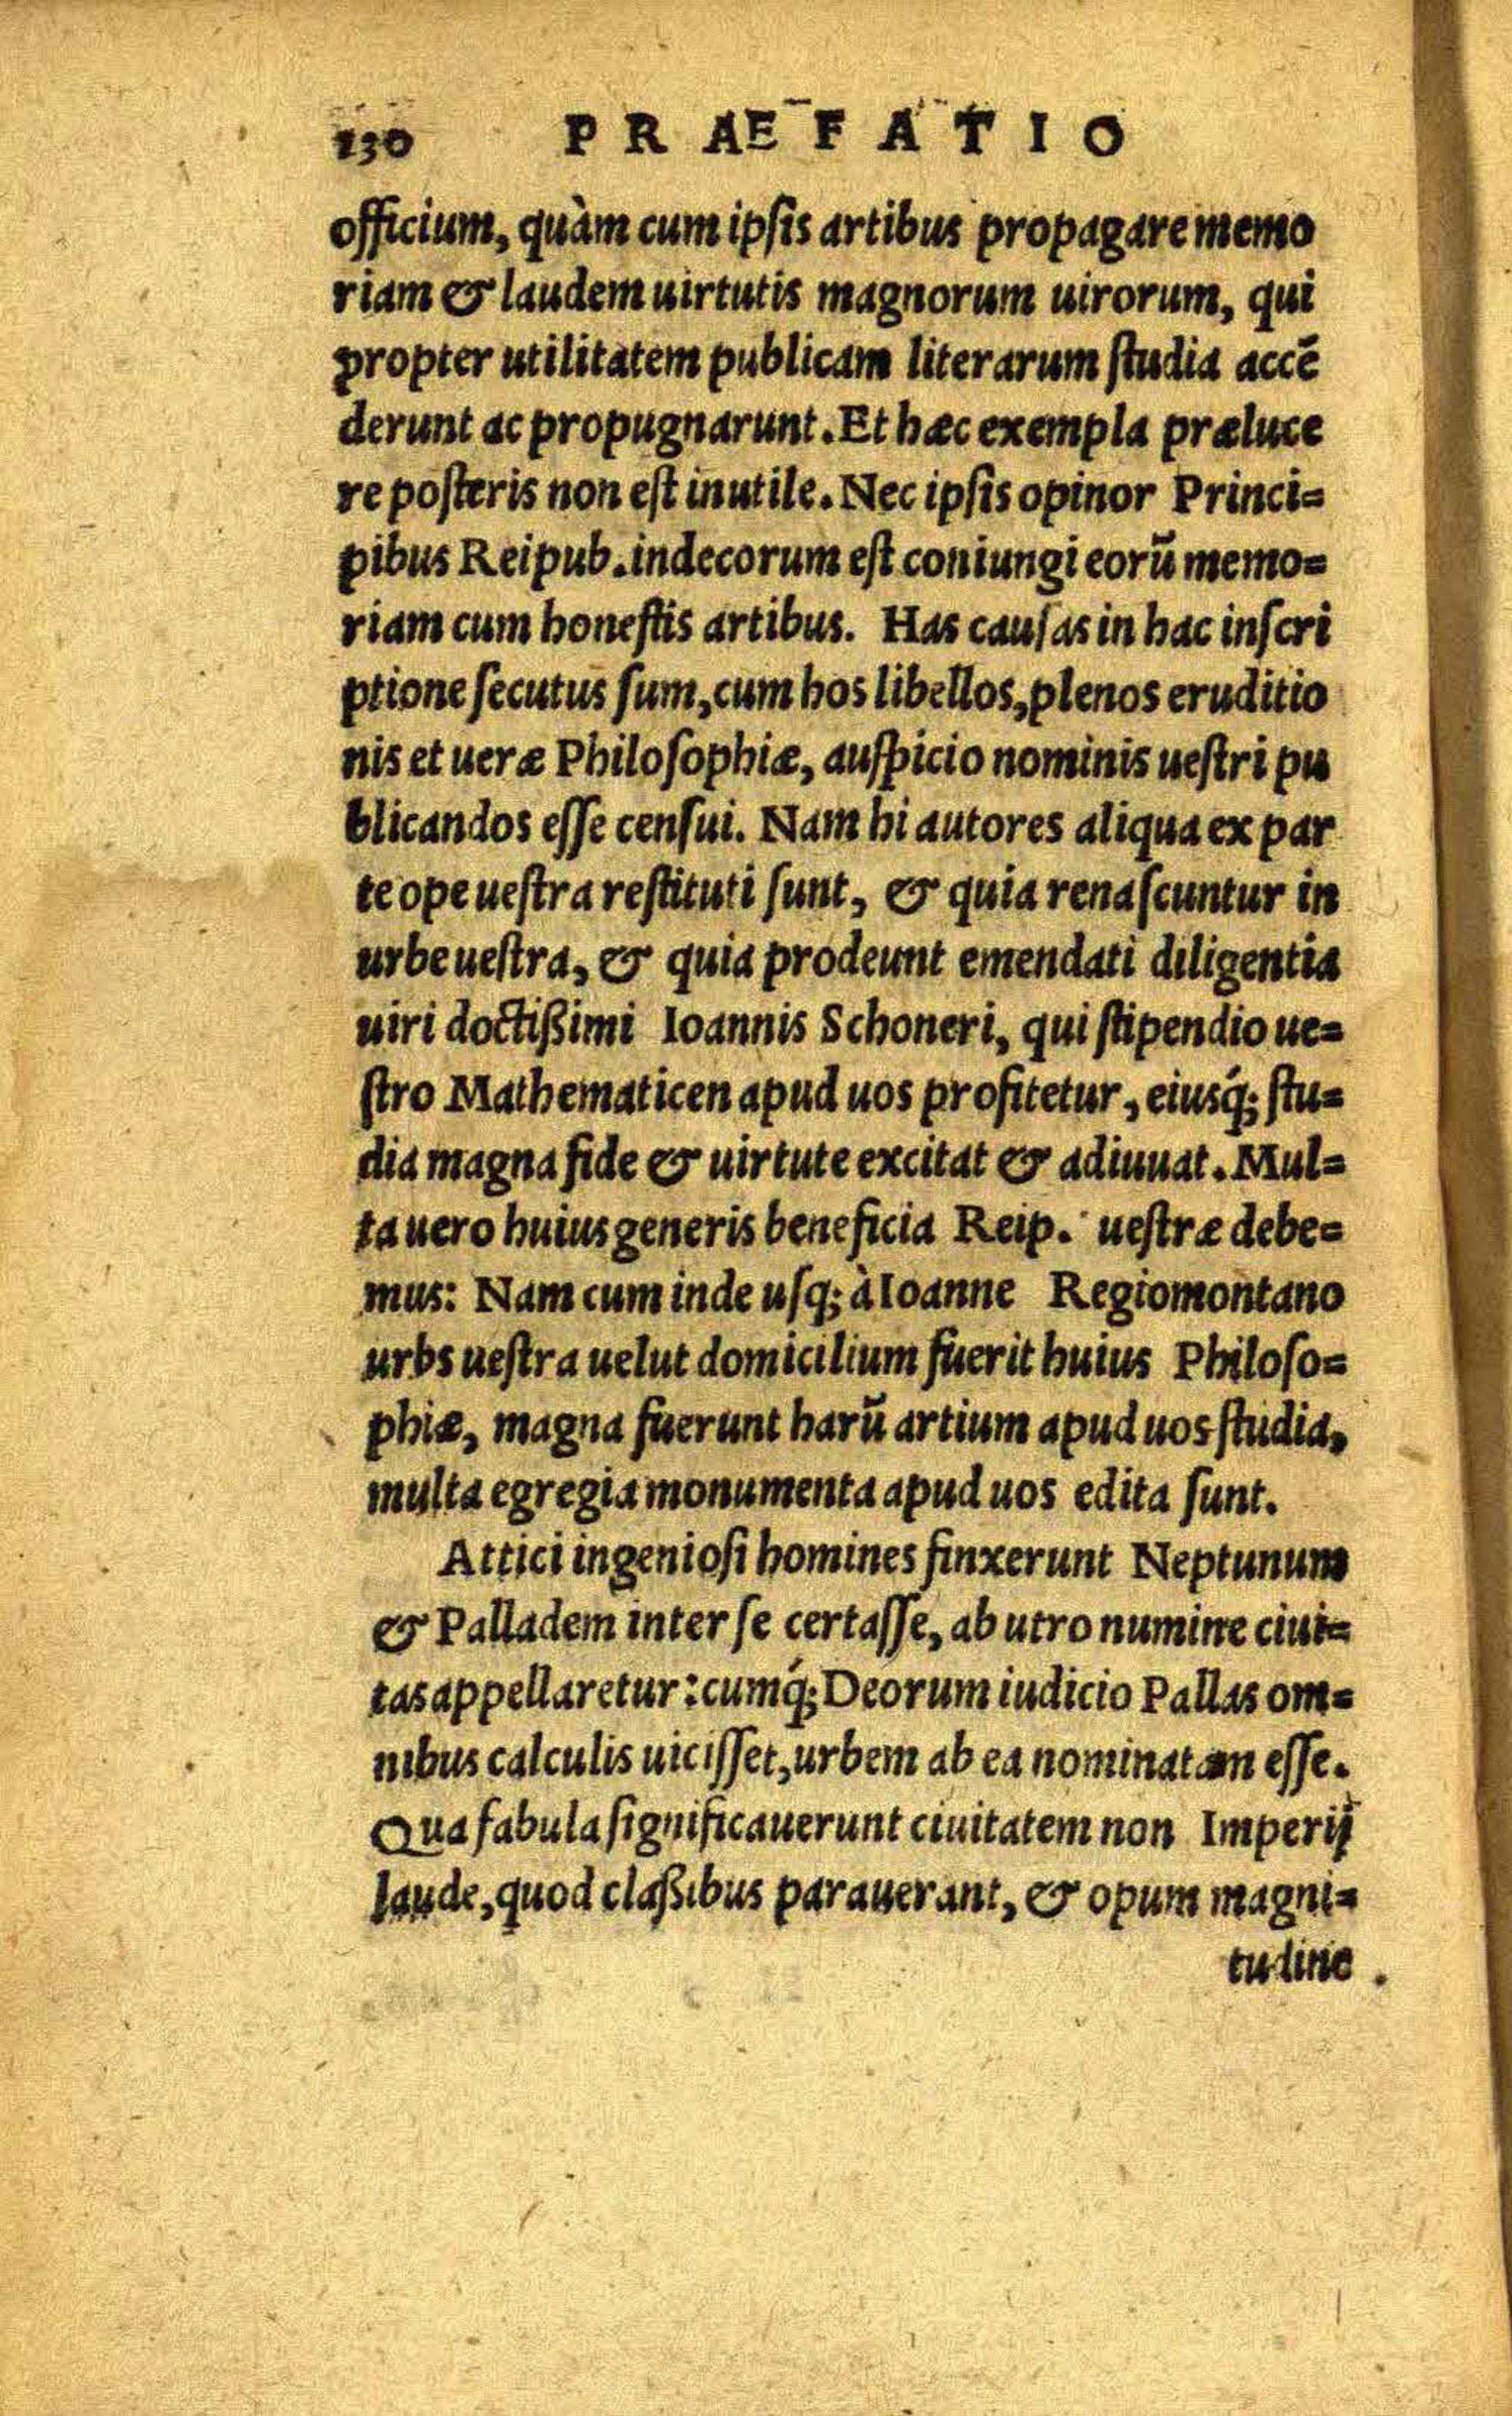 130 PRAEFATIO
officium, quàm cum ipsis artibus propagare memo
riam & laudem uirtutis magnorum uirorum, qui
propter utilitatem publicam literarum studia accē
derunt ac propugnarunt. Et hæc exempla præluce
re posteris non est inutile. Nec ipsis opinor Princi=
pibus Reipub. indecorum est coniungi eorū memo=
riam cum honestis artibus. Has causas in hac inscri
ptione secutus sum, cum hos libellos, plenos eruditio
nis et ueræ Philosophiæ, auspicio nominis uestri pu
blicandos esse censui. Nam hi autores aliqua ex par
te ope uestra restituti sunt, & quia renascuntur in
urbe uestra, & quia prodeunt emendati diligentia
uiri doctißimi Ioannis Schoneri, qui stipendio ue=
stro Mathematicen apud uos profitetur, eiusq́; stu=
dia magna fide & uirtute excitat & adiuuat. Mul=
ta uero huius generis beneficia Reip. uestræ debe=
mus: Nam cum inde usq; à Ioanne Regiomontano
urbs uestra uelut domicilium fuerit huius Philoso=
phiæ, magna fuerunt harū artium apud uos studia,
multa egregia monumenta apud uos edita sunt.
Attici ingeniosi homines finxerunt Neptunum
& Palladem inter se certasse, ab utro numine ciui=
tas appellaretur: cumq́; Deorum iudicio Pallas om=
nibus calculis uicisset, urbem ab ea nominatam esse.
Qua fabula significauerunt ciuitatem non Imperij
laude, quod claßibus parauerant, & opum magni=
tudine